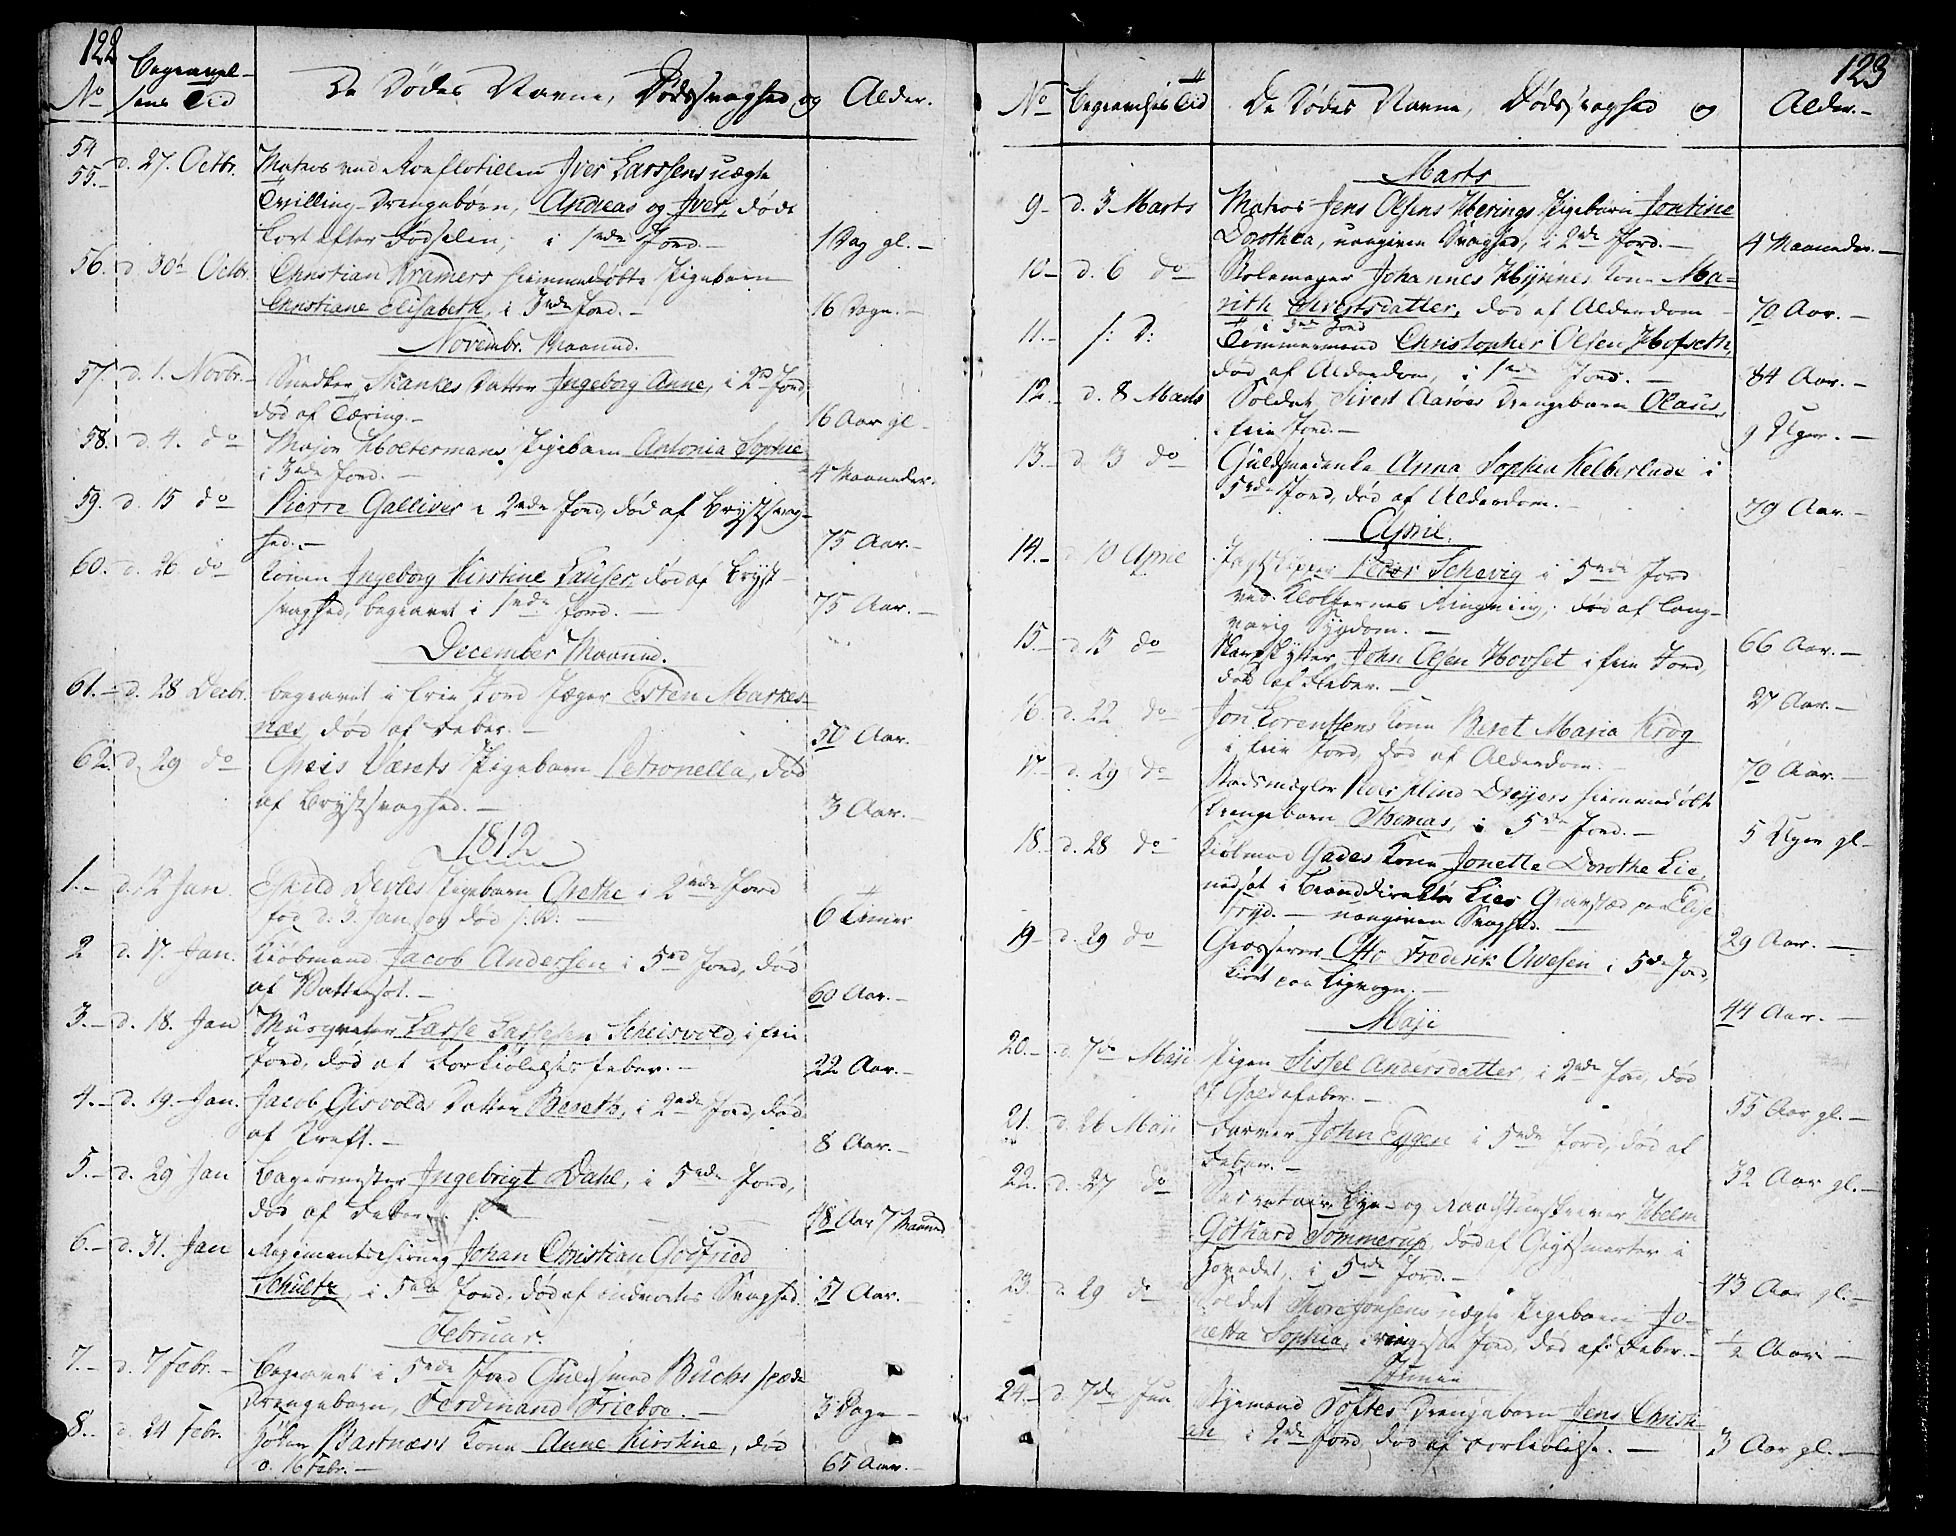 122
No
Begravel-
sens Tid
De Dødes Navne, Dødssvaghed og Alder.
54
55.- d. 27. Octbr. Matros ved Roeflotillen Iver Larssens uægte
Tvilling-Drengebørn, Andreas og Iver, døde
kort efter Fødselen, i 1ste Jord.- 1 Dag gl.-
56. d. 30te Octbr. Christian Kramers hiemmedøbte Pigebarn
Christiane Elisabeth, i 3die Jord.- 16 Dage.-
Novembr. Maaned.
57. d. 1. Novbr.- Snedker Skankes Datter Ingeborg Anne, i 2de Jord
død af Tæring.- 16 Aar gl-
58. d. 4. do Major Holtermans Pigebarn Antonia Sophie
i 3die Jord.- 4 Maaneder.
59. d. 15 do Pierre Galliver i 2den Jord, død af Brystsvag-
hed.- 75 Aar.-
60. d. 26. do Konen Ingeborg Kirstine Lauser, død af Bryst-
svaghed, begravet i 1ste Jord.- 75 Aar.-
December Maaned.
61.- d. 28 Decbr. begravet i frie Jord Jæger Esten Markes-
næs, død af Feber.- 50 Aar.
62. d. 29 do Greis Værets Pigebarn Petronella, død
af Brystsvaghed.- 3 Aar.-
1812
1.- d. 12 Jan. Devles Pigebarn Grethe i 2den Jord
fød d. 5. Jan og død s. D.- 6 Timer
2 d. 17. Jan. Kiøbmand Jacob Andersen i 5te Jord, død
af Vattersot.- 60 Aar.-
3.- d. 18. Jan Musqueter Lasse Lassesen Scheisvold, i frie
Jord, død af Forkiølelses Feber.- 22 Aar.-
4.- d. 19. Jan. Jacob Gisvolds Datter Bereth, i 2den Jord, død
af Kreft.- 8 Aar.-
5.- d. 29 Jan Bagermester Ingebrigt Dahl, i 5te Jord,
død af Feber. 48 Aar 7 Maaned
6.- d. 31. Jan Regimentschirurg Johan Christian Gotfried
Schultz, i 5te Jord, død af indvortes Svaghed. 51 Aar.-
Februar.
7.- d. 7 Febr.- Begravet i 5te Jord Guldsmed Buchs spæde
Drengebarn, Ferdinand Frieboe.- 3 Dage-
8.- d. 24 Febr. Bartnæss Kone Anne Kirstine, død
d. 16 Febr.- 65 Aar.-
123
No Begravelses Tid De Dødes Navne, Dødssvaghed og Alder.-
Marts
9- d. 3 Marts Matros Jens Olsens Hærings Pigebarn Jontine
Dorothea, uangiven Svaghed, i 2den Jord.- 4 Maaneder.-
10- d. 6 do Skolemager Johannes Hyrnes Kone Ma-
rith Sivertsdatter, død af Alderdom- 70 Aar.-
i 3die Jord
11.- s: D: Tømmermand Christopher Olsen Hofseth,
død af Alderdom, i 1ste Jord.- 84 Aar.-
12.- d. 8 Marts Soldat Sivert Aarøes Drengebarn Olaus,
i frie Jord.- 9 Uger.-
13.- d. 13 do Guldsmedenke Anna Sophia Kelberlade i
5te Jord, død af Alderdom.- 79 Aar.-
April.
14.- d 10 April Jagtskipper Peder Schevig i 5te Jord
ved Klokkernes Ringning, død af lang-
varig Sygdom.- 66 Aar.-
15.- d 15 do Skarpskytter John Olsen Hovset i frie Jord,
død af Feber.- 27 Aar.-
16. d. 22 do Jon Lorentsens Kone Beret Maria Krog
i frie Jord, død af Alderdom.- 70 Aar.-
17.- d. 29 do Stadsmægler Peter Hind Dreyers hiemmedøbte
Drengebarn Thomas, i 5te Jord.- 5 Uger gl-
18.- d. 28 do Kiøbmd Gades Kone Jonetta Dorothe Lie,
nedsat i Branddirektør Lies Gravsted paa
uangiven Svaghed.- 29 Aar.-
19- d. 29 do Grosserer Otto Frederik Owesen i 5te Jord,
kiørt paa Liigvogn.- 44 Aar.-
Maji
20.- d. 7de Maji Pigen Sissel Andersdatter, i 2den Jord, død
af Galdefeber.- 55 Aar gl.-
21. d. 26 Maji Farver John Eggen i 5te Jord, død af
Feber.- 32 Aar gl.-
22. d. 27 do Secretair, Bye- og Raadstueskriver Helm
Gothard Sommerup, død af Gigtsmerter i
Hovedet, i 5te Jord.- 43 Aar gl.-
23. d. 29 do Soldat Thore Jonsens uægte Pigebarn Jo-
netta Sophia, i ringeste Jord, død af Feber.- ½ Aar-
Junii
24.- d. 7de Jun Byemand Toftes Drengebarn Jens Christi-
an i 2den Jord, død af Forkiølelse.- 3 Aar gl.-